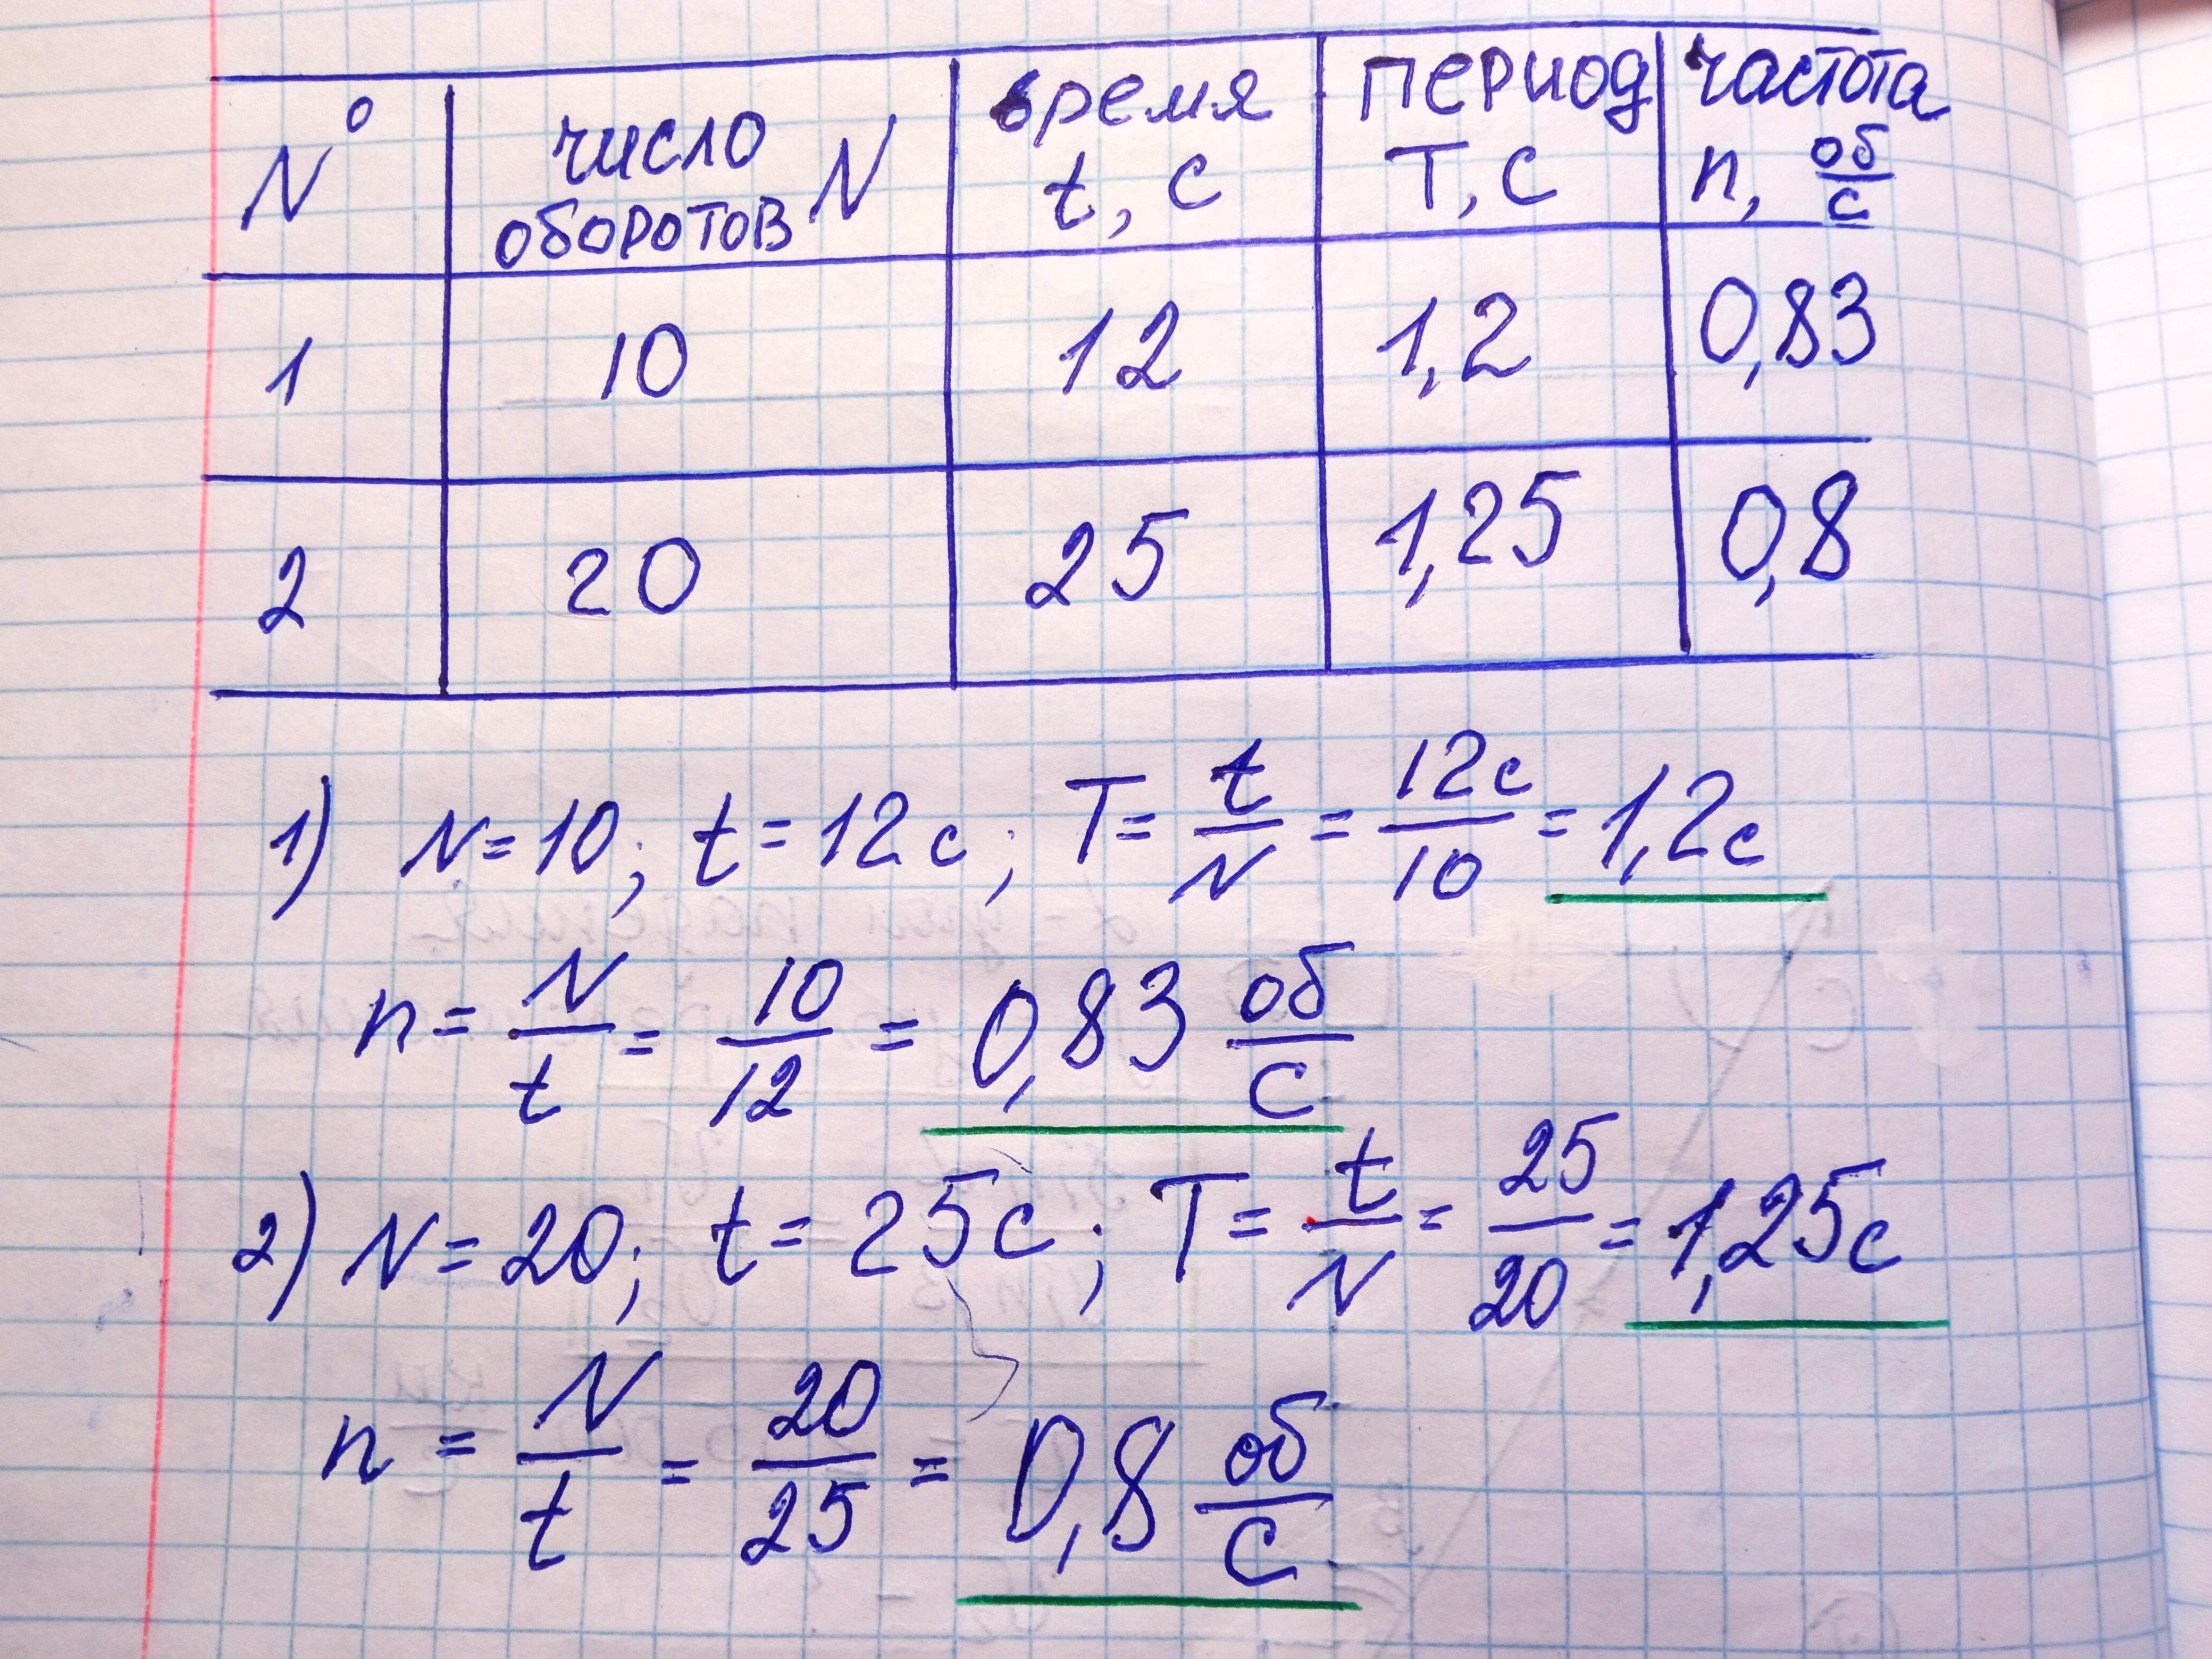 № число оборотов N время t, с период T, с частота n, об/с
1 10 12 1,2 0,83
2 20 25 1,25 0,8
1) N=10; t=12с; T= t/N = 12с/10 = 1,2с
n= N/t = 10/12 = 0,83 об/с
2) N=20; t=25с; T= t/N = 25/20 = 1,25с
n = N/t = 20/25 = 0,8 об/с